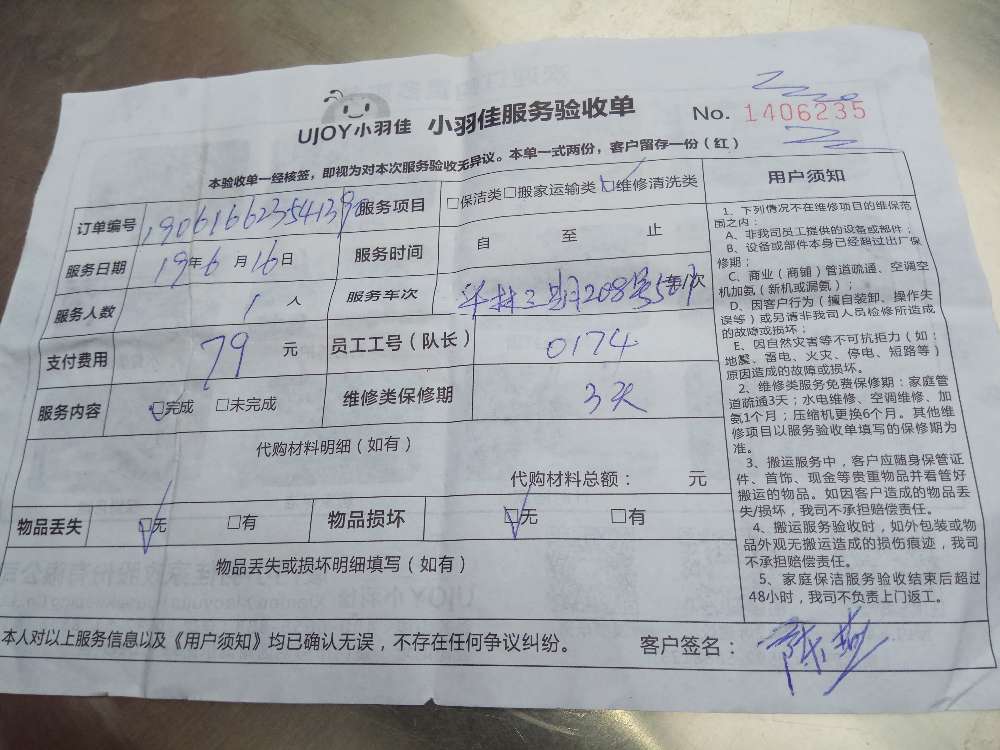 UJOY小羽佳 小羽佳服务验收单 No. 1406235
本验收单一经核签，即视为对本次服务验收无异议。本单一式两份，客户留存一份（红）
订单编号 服务项目 □保洁类□搬家运输类□维修清洗类
服务日期 19年6月16日 服务时间 自 至 止
服务人数 1 人 服务车次 车/次
支付费用 79 元 员工工号（队长） 0174
服务内容 □完成 □未完成 维修类保修期 3天
代购材料明细（如有）
代购材料总额： 元
物品丢失 □无 □有 物品损坏 □无 □有
物品丢失或损坏明细填写（如有）
用户须知
1、下列情况不在维修项目的维保范
围之内：
A、非我司员工提供的设备或部件；
B、设备或部件本身已经超过出厂保
修期；
C、商业（商铺）管道疏通、空调空
机加氨（新机或漏氨）；
D、因客户行为（擅自装卸、操作失
误等）或另请非我司人员检修所造成
的故障或损坏；
E、因自然灾害等不可抗拒力（如：
地震、雷电、火灾、停电、短路等）
原因造成的故障或损坏。
2、维修类服务免费保修期：家庭管
道疏通3天；水电维修、空调维修、加
氨1个月；压缩机更换6个月。其他维
修项目以服务验收单填写的保修期为
准。
3、搬运服务中，客户应随身保管证
件、首饰、现金等贵重物品并看管好
搬运的物品。如因客户造成的物品丢
失/损坏，我司不承担赔偿责任。
4、搬运服务验收时，如外包装或物
品外观无搬运造成的损伤痕迹，我司
不承担赔偿责任。
5、家庭保洁服务验收结束后超过
48小时，我司不负责上门返工。
本人对以上服务信息以及《用户须知》均已确认无误，不存在任何争议纠纷。 客户签名：